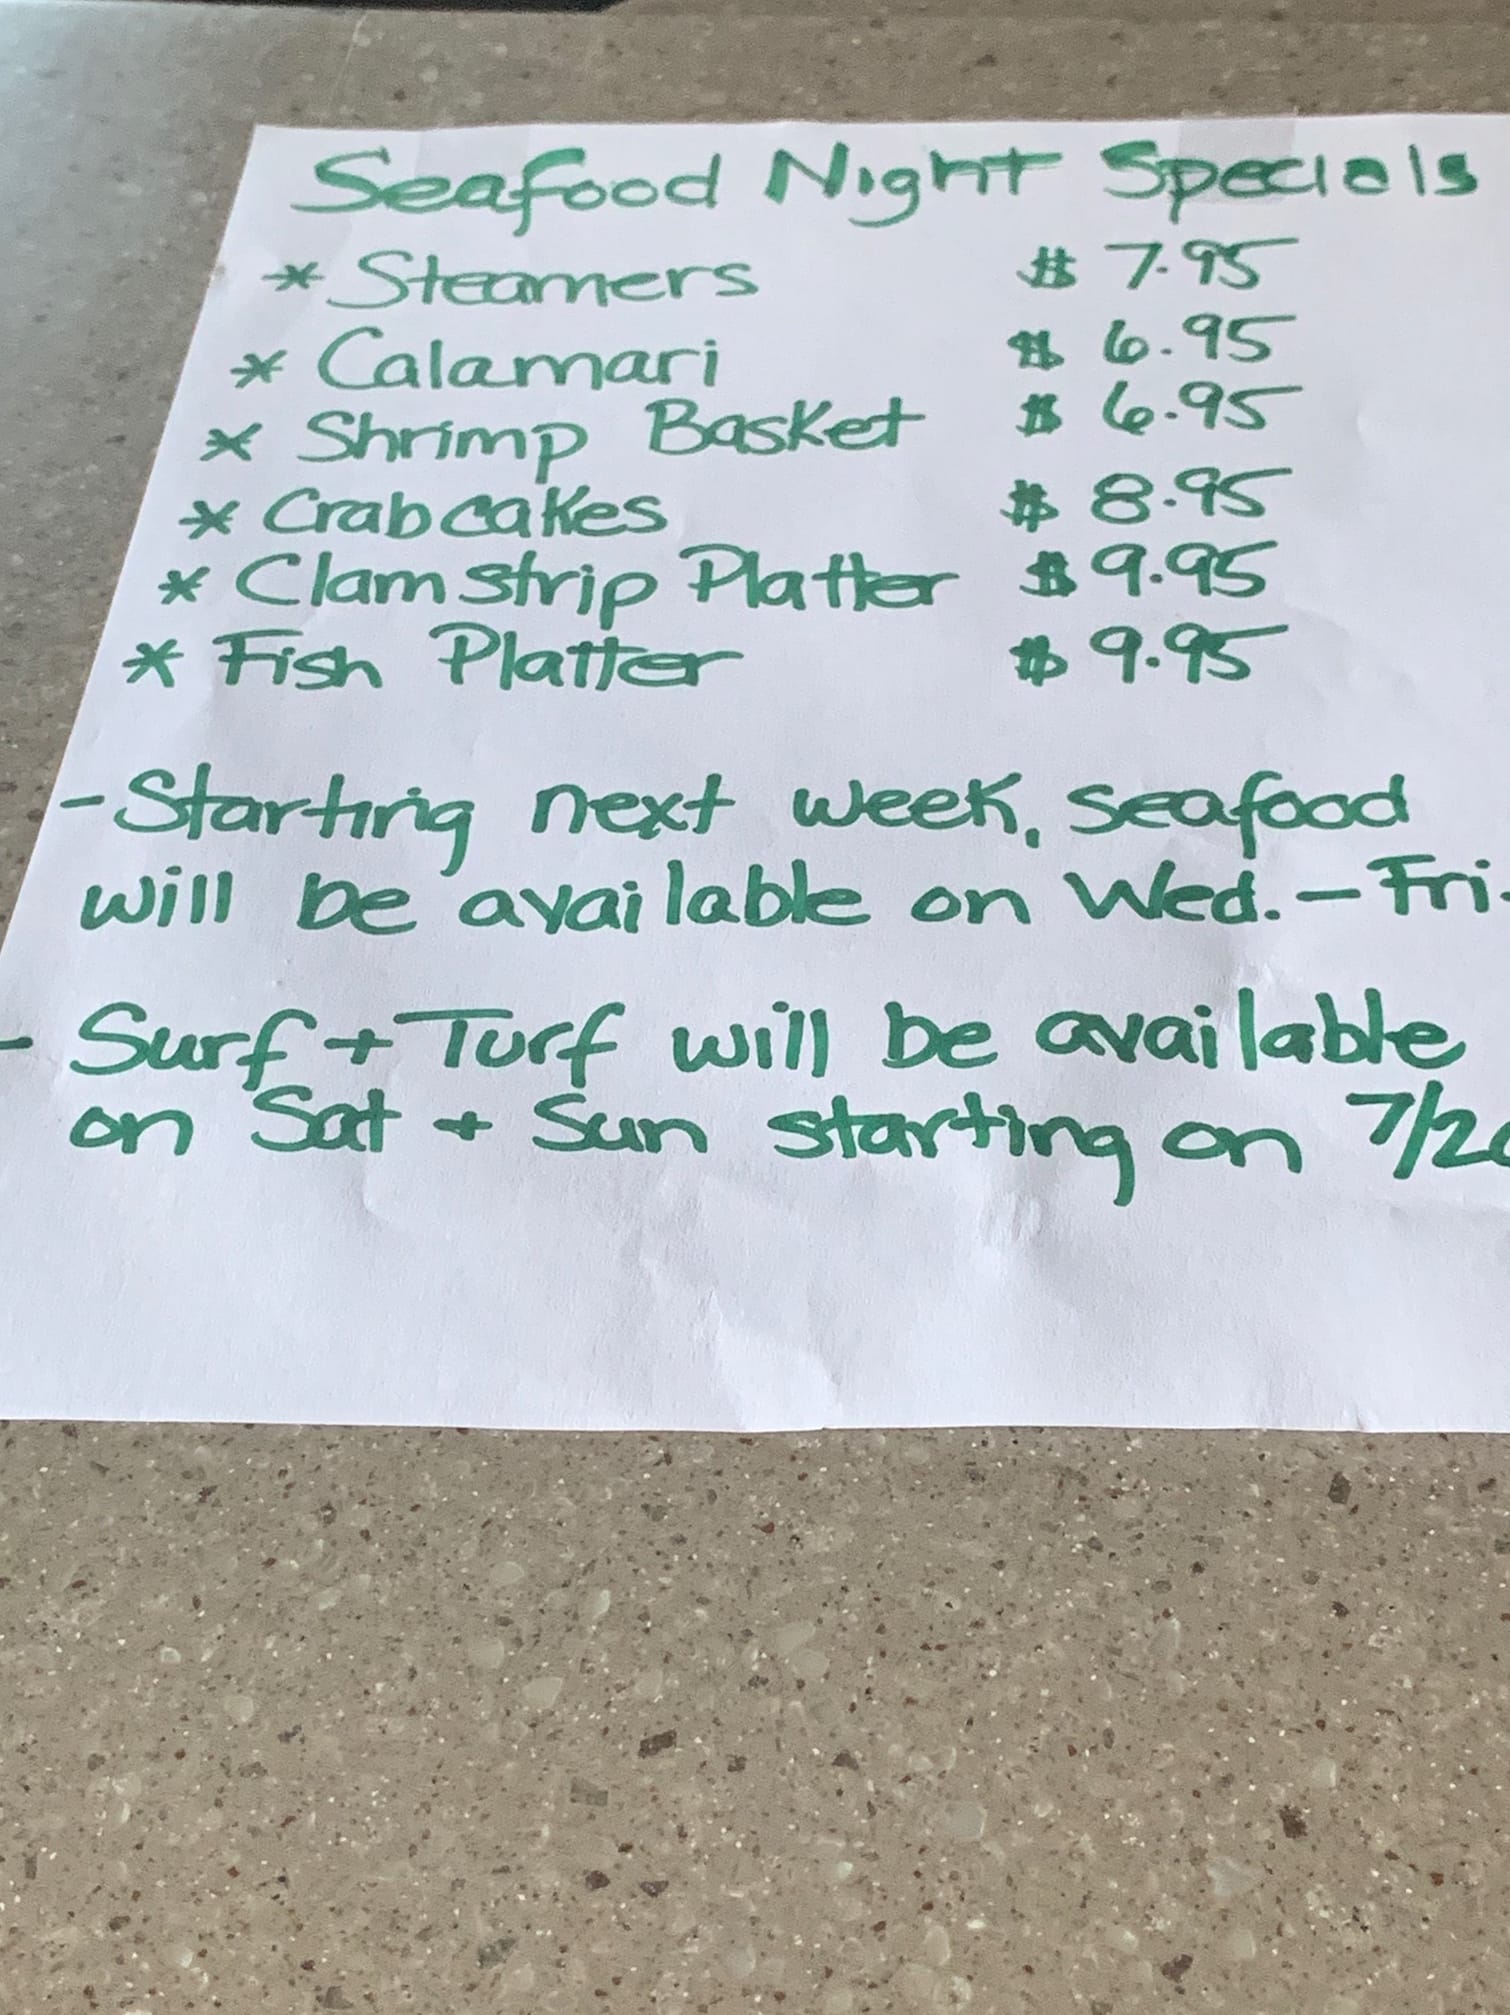 Seafood Night Specials
* Steamers $ 7.95
* Calamari $ 6.95
* Shrimp Basket $ 6.95
* Crabcakes $ 8.95
* Clam strip Platter $ 9.95
* Fish Platter $ 9.95
- Starting next week, seafood
will be available on Wed. - Fri.
- Surf + Turf will be available
on Sat + Sun starting on